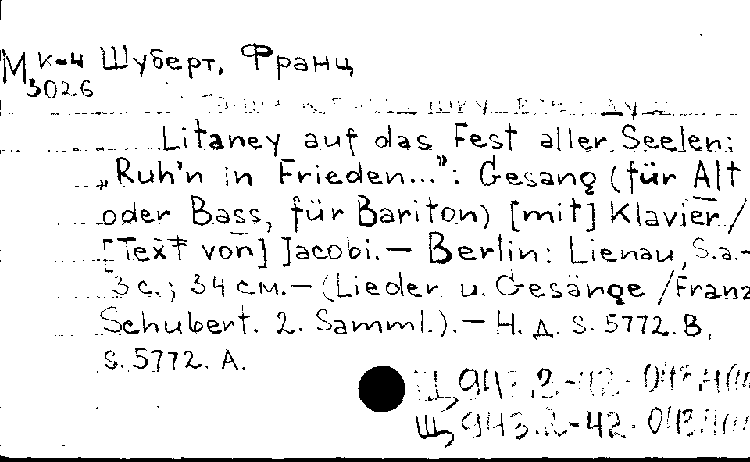 М к-ч Шуберт, Франц
3026
Litaney auf das Fest aller Seelen:
„Ruh'n in Frieden...": Gesang (für Alt
oder Bass, für Bariton) [mit] Klavier /
[Text von] Jacobi. — Berlin: Lienau, S.a. -
3 с.; 34 см. — (Lieder u. Gesänge / Franz
Schubert. 2. Samml.). — Н. д. S. 5772. B,
S. 5772. A.
Щ 943.2-42.
Щ 943.2-42.